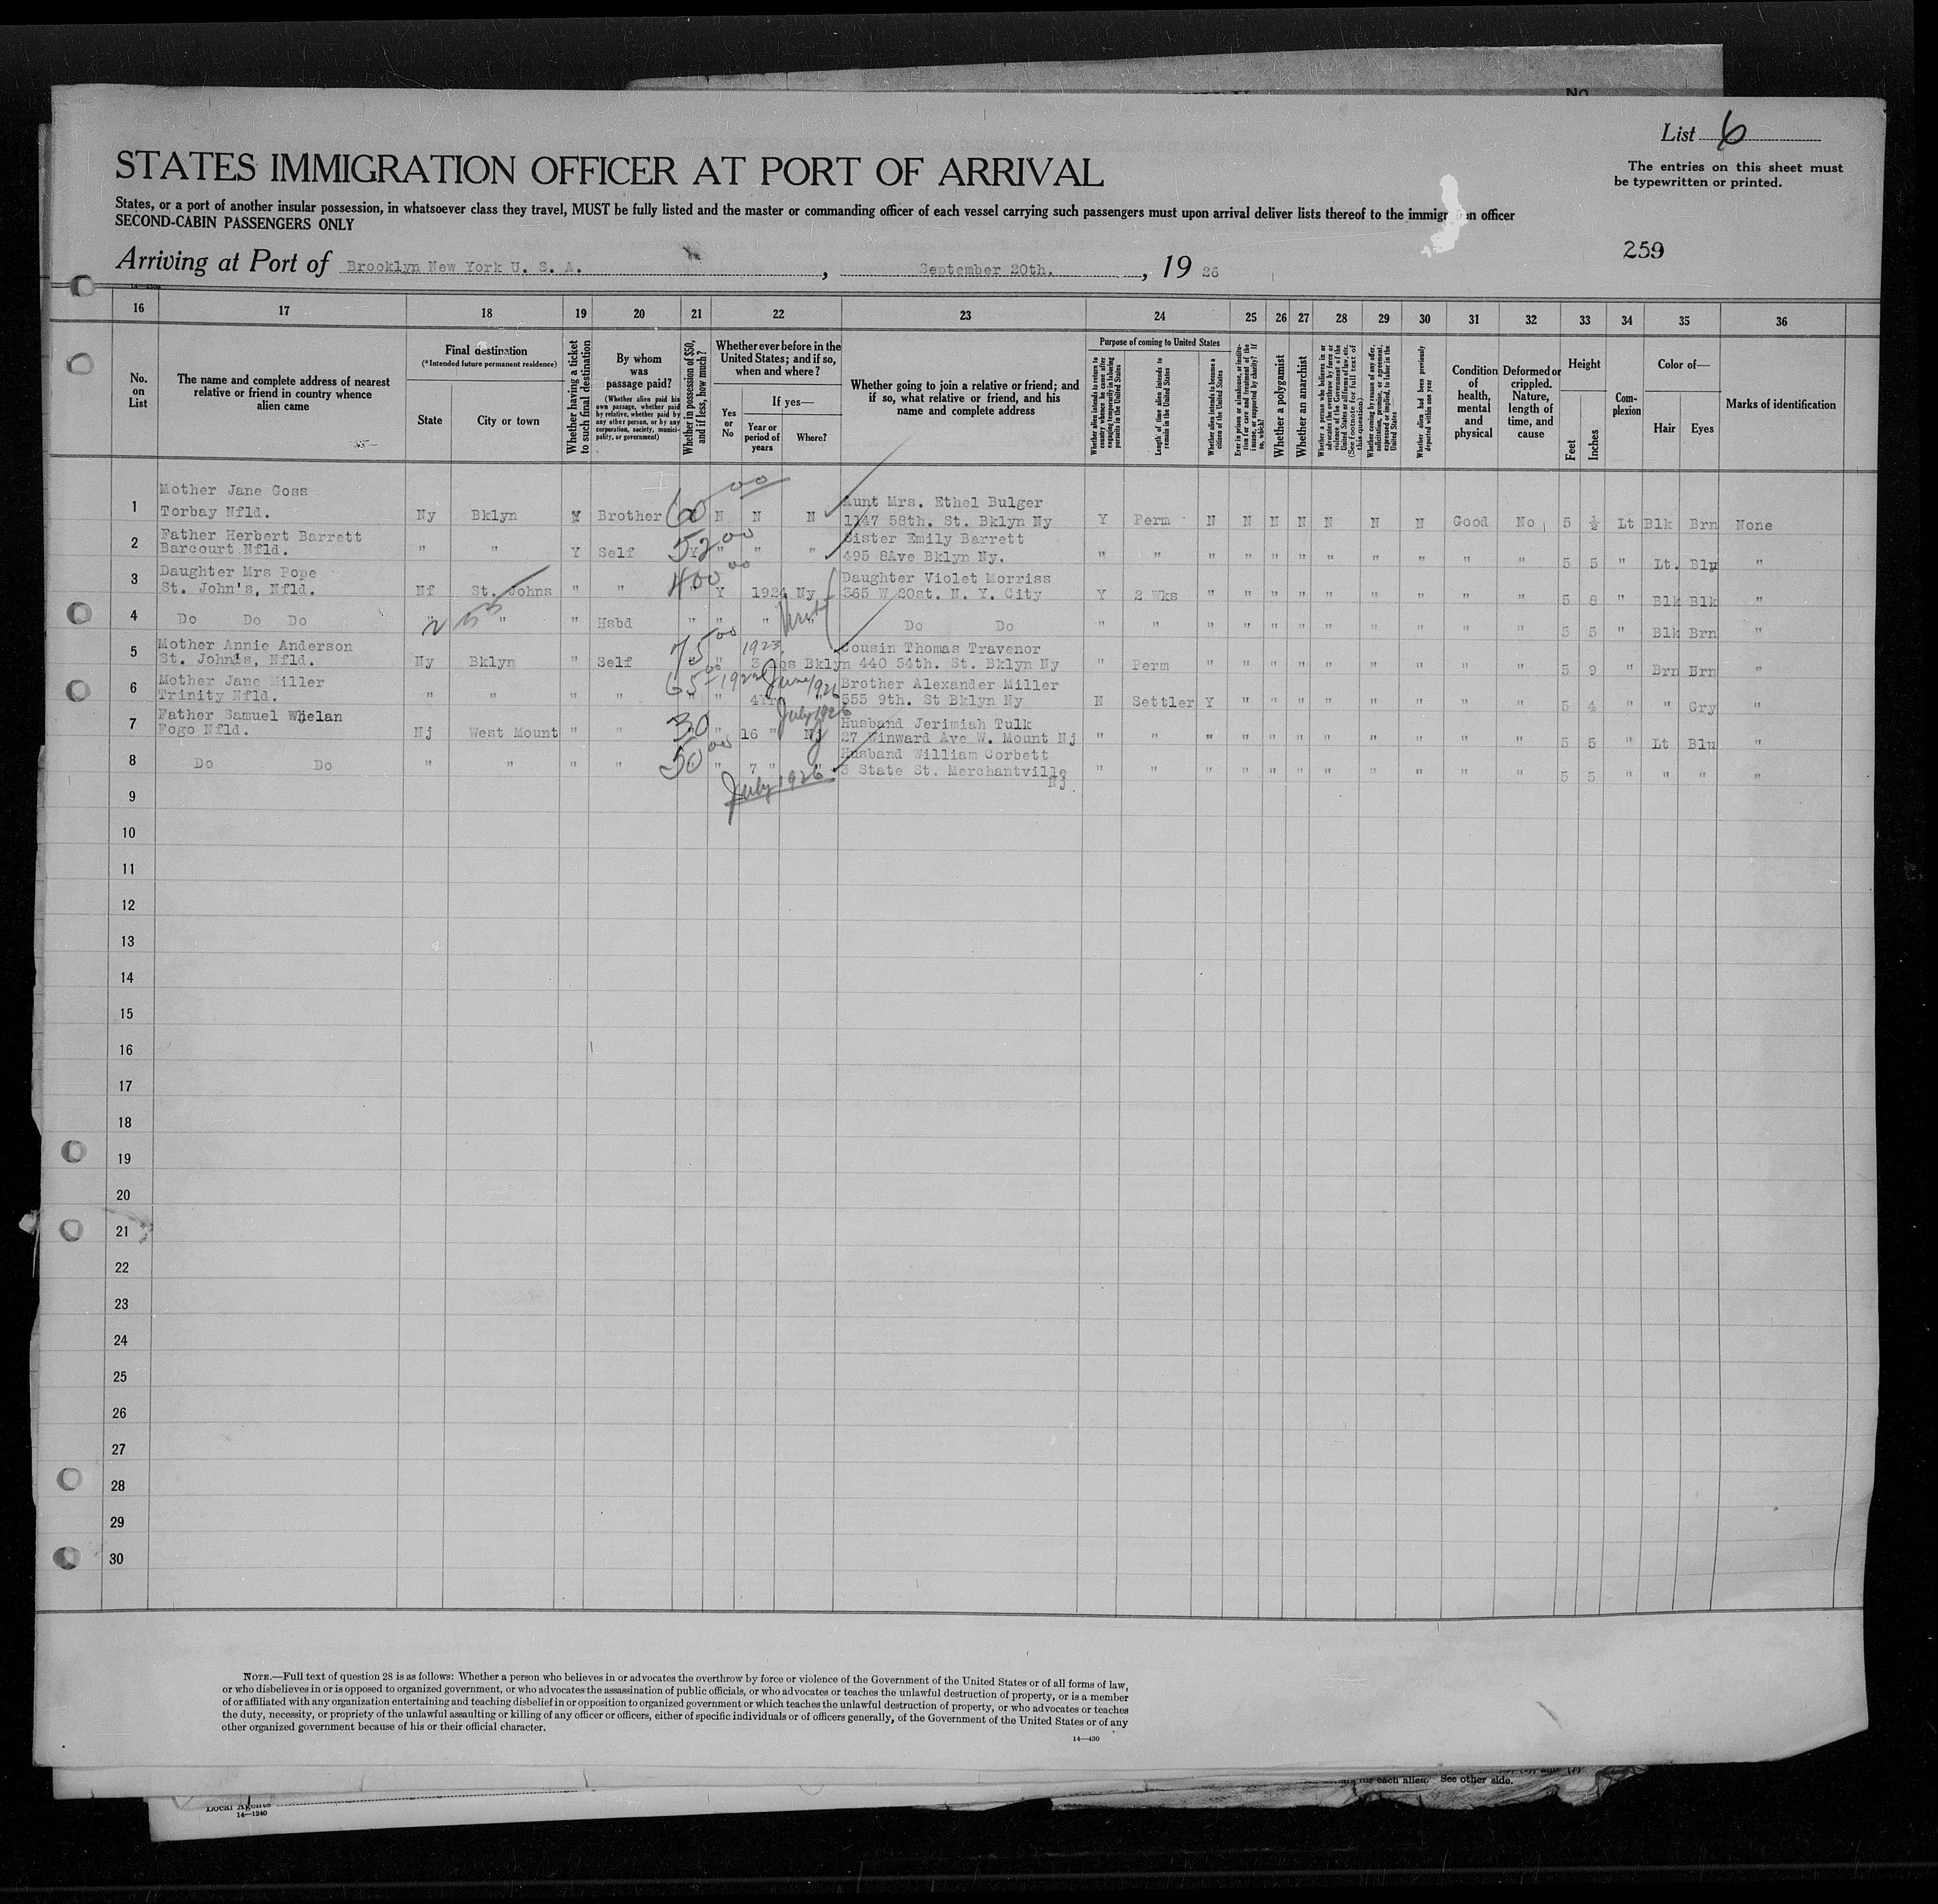 No
List 6
STATES IMMIGRATION OFFICER AT PORT OF ARRIVAL
The entries on this sheet must
be typewritten or printed.
States, or a port of another insular possession, in whatsoever class they travel, MUST be fully listed and the master or commanding officer of each vessel carrying such passengers must upon arrival deliver lists thereof to the immigration officer
SECOND-CABIN PASSENGERS ONLY
259
Arriving at Port of Brooklyn New York U. S. A. , September 20th. , 19 26
16 17 18 19 20 21 22 23 24 25 26 27 28 29 30 31 32 33 34 35 36
No. on List
The name and complete address of nearest relative or friend in country whence alien came
Final destination
(*Intended future permanent residence)
State
City or town
Whether having a ticket to such final destination
By whom was passage paid?
(Whether alien paid his own passage, whether paid by relative, whether paid by any other person, or by any corporation, society, municipality, or government)
Whether in possession of $50, and if less, how much?
Whether ever before in the United States; and if so, when and where?
Yes or No
If yes—
Year or period of years
Where?
Whether going to join a relative or friend; and if so, what relative or friend, and his name and complete address
Purpose of coming to United States
Whether alien intends to return to country whence he came after engaging temporarily in laboring pursuits in the United States
Length of time alien intends to remain in the United States
Whether alien intends to become a citizen of the United States
Ever in prison or almshouse, or institution for care and treatment of the insane, or supported by charity? If so, which?
Whether a polygamist
Whether an anarchist
Whether a person who believes in or advocates the overthrow by force or violence of the Government of the United States or all forms of law, etc. (See footnote for full text of this question)
Whether coming by reason of any offer, solicitation, promise, or agreement, expressed or implied, to labor in the United States
Whether alien had been previously deported within one year
Condition of health, mental and physical
Deformed or crippled. Nature, length of time, and cause
Height
Feet
Inches
Complexion
Color of—
Hair
Eyes
Marks of identification
Mother Jane Goss
1 Torbay Nfld. Ny Bklyn Y Brother 60 00 N N N Aunt Mrs. Ethel Bulger
1147 58th. St. Bklyn Ny Y Perm N N N N N N N Good No 5 ½ Lt Blk Brn None
Father Herbert Barrett
2 Barcourt Nfld. " " Y Self 52 00 Y " " " Sister Emily Barrett
495 8Ave Bklyn Ny. " " " " " " " " " " " 5 5 " Lt. Blu "
Daughter Mrs Pope
3 St. John's, Nfld. Nf St. Johns " " 400 00 Y 1924 Ny Daughter Violet Morriss
365 W 20st. N. Y. City Y 2 Wks " " " " " " " " " 5 8 " Blk Blk "
4 Do Do Do " " " Hsbd " " " Visit Do Do " " " " " " " " " " " 5 5 " Blk Brn "
Mother Annie Anderson
5 St. John's, Nfld. Ny Bklyn " Self 75 00 " 1923 Cousin Thomas Travenor
Bklyn 440 54th. St. Bklyn Ny " Perm " " " " " " " " " 5 9 " Brn Brn "
Mother Jane Miller
6 Trinity Nfld. " " " " 65 00 " 1922 June 1926 Brother Alexander Miller
555 9th. St Bklyn Ny N Settler Y " " " " " " " " 5 4 " " Gry "
Father Samuel Whelan
7 Fogo Nfld. Nj West Mount " " 30 " 16 " Nj July 1926 Husband Jerimiah Tulk
27 Winward Ave W. Mount Nj " " " " " " " " " " " 5 5 " Lt Blu "
8 Do Do " " " " 50 00 " 7 " " Husband William Corbett
5 State St. Merchantville " " " " " " " " " " " 5 5 " " " "
Nj
July 1926
9
10
11
12
13
14
15
16
17
18
19
20
21
22
23
24
25
26
27
28
29
30
NOTE.—Full text of question 28 is as follows: Whether a person who believes in or advocates the overthrow by force or violence of the Government of the United States or of all forms of law,
or who disbelieves in or is opposed to organized government, or who advocates the assassination of public officials, or who advocates or teaches the unlawful destruction of property, or is a member
of or affiliated with any organization entertaining and teaching disbelief in or opposition to organized government or which teaches the unlawful destruction of property, or who advocates or teaches
the duty, necessity, or propriety of the unlawful assaulting or killing of any officer or officers, either of specific individuals or of officers generally, of the Government of the United States or of any
other organized government because of his or their official character.
14—430
for each alien. See other side.
Local Agents
14—1240